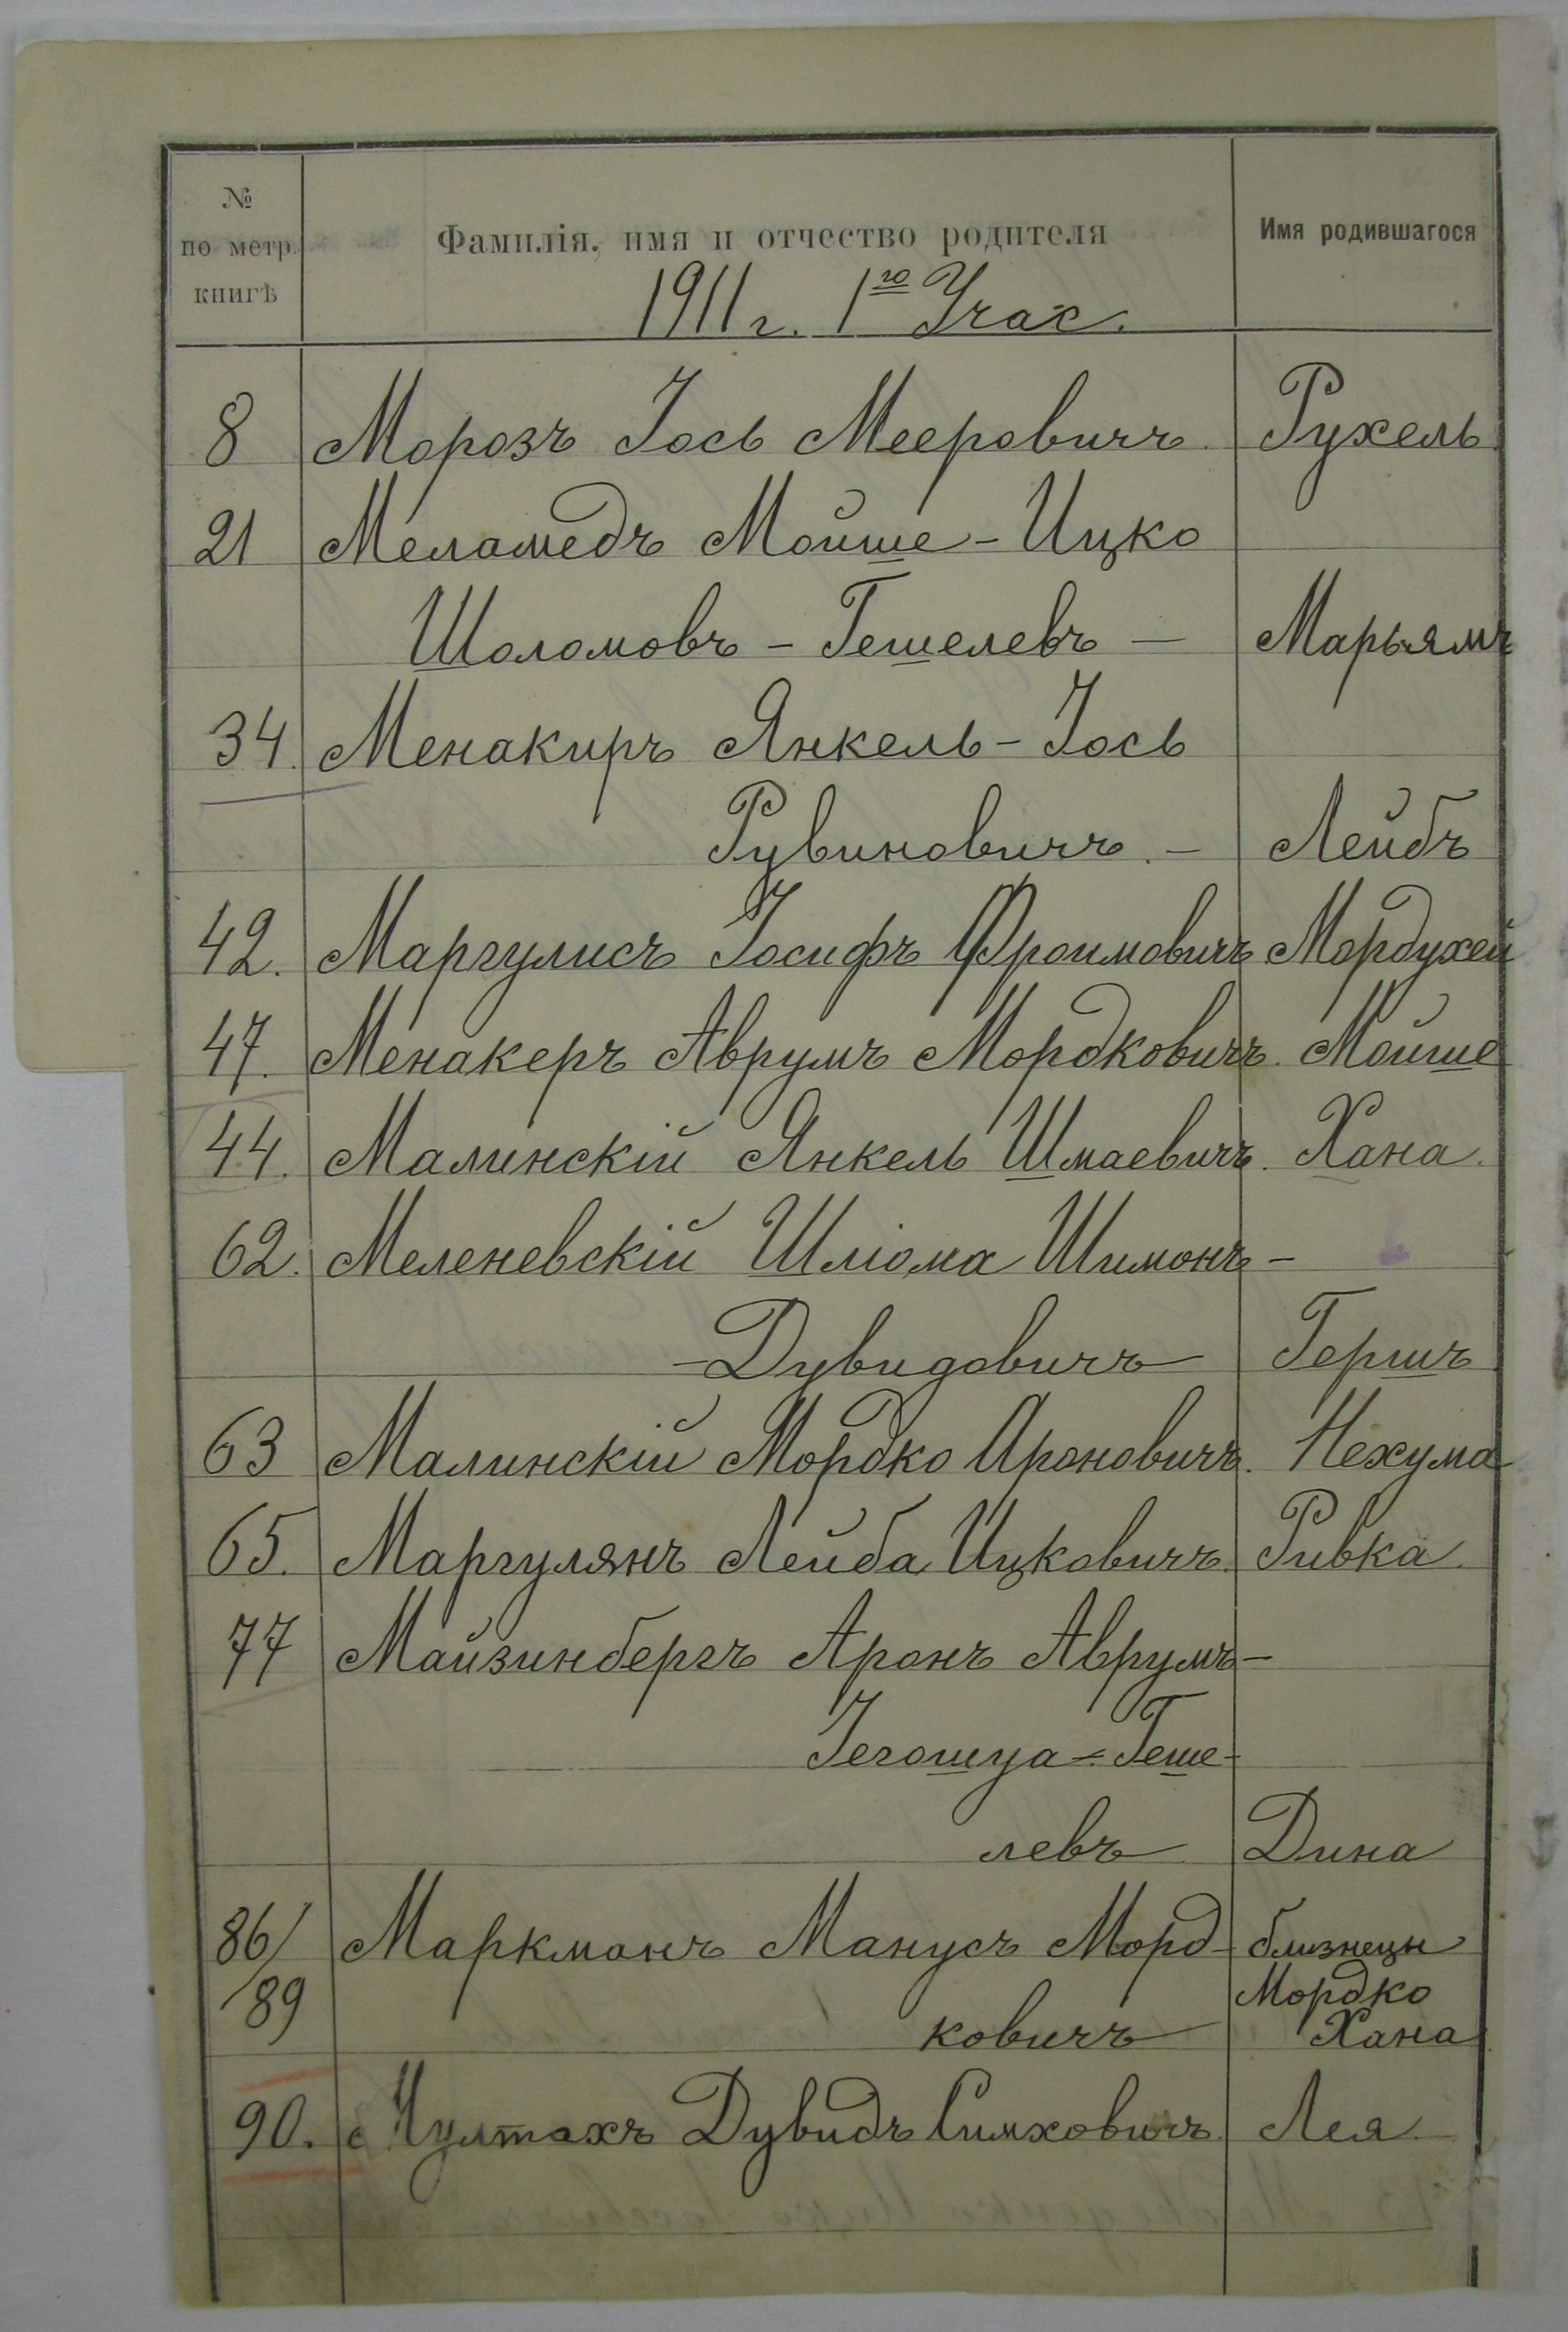 № по метр. книгѣ
Фамилія, имя и отчество родителя
Имя родившагося
1911 г. 1го Учас.
8 Морозъ Іось Мееровичъ Рухель
21 Меламедъ Мойше - Ицко
Шоломовъ - Гешелевъ — Марьямъ
34. Менакиръ Янкель - Іось
Рувиновичъ. — Лейбъ
42. Маргулисъ Іосифъ Фроимовичъ Мордухей
47. Менакеръ Аврумъ Мордковичъ. Мойше
44. Малинскій Янкель Шмаевичъ. Хана.
62. Меленевскій Шліома Шимонъ -
- Дувидовичъ Гершъ
63 Малинскій Мордко Ароновичъ. Нехума
65. Маргулянъ Лейба Ицковичъ. Ривка.
77 Майзинбергъ Аронъ Аврумъ -
Іегошуа - Геше-
левъ Дина
86/ Маркманъ Манусъ Морд- близнецы
89 Мордко
ковичъ Хана
90. Дувидъ Симховичъ. Лея.